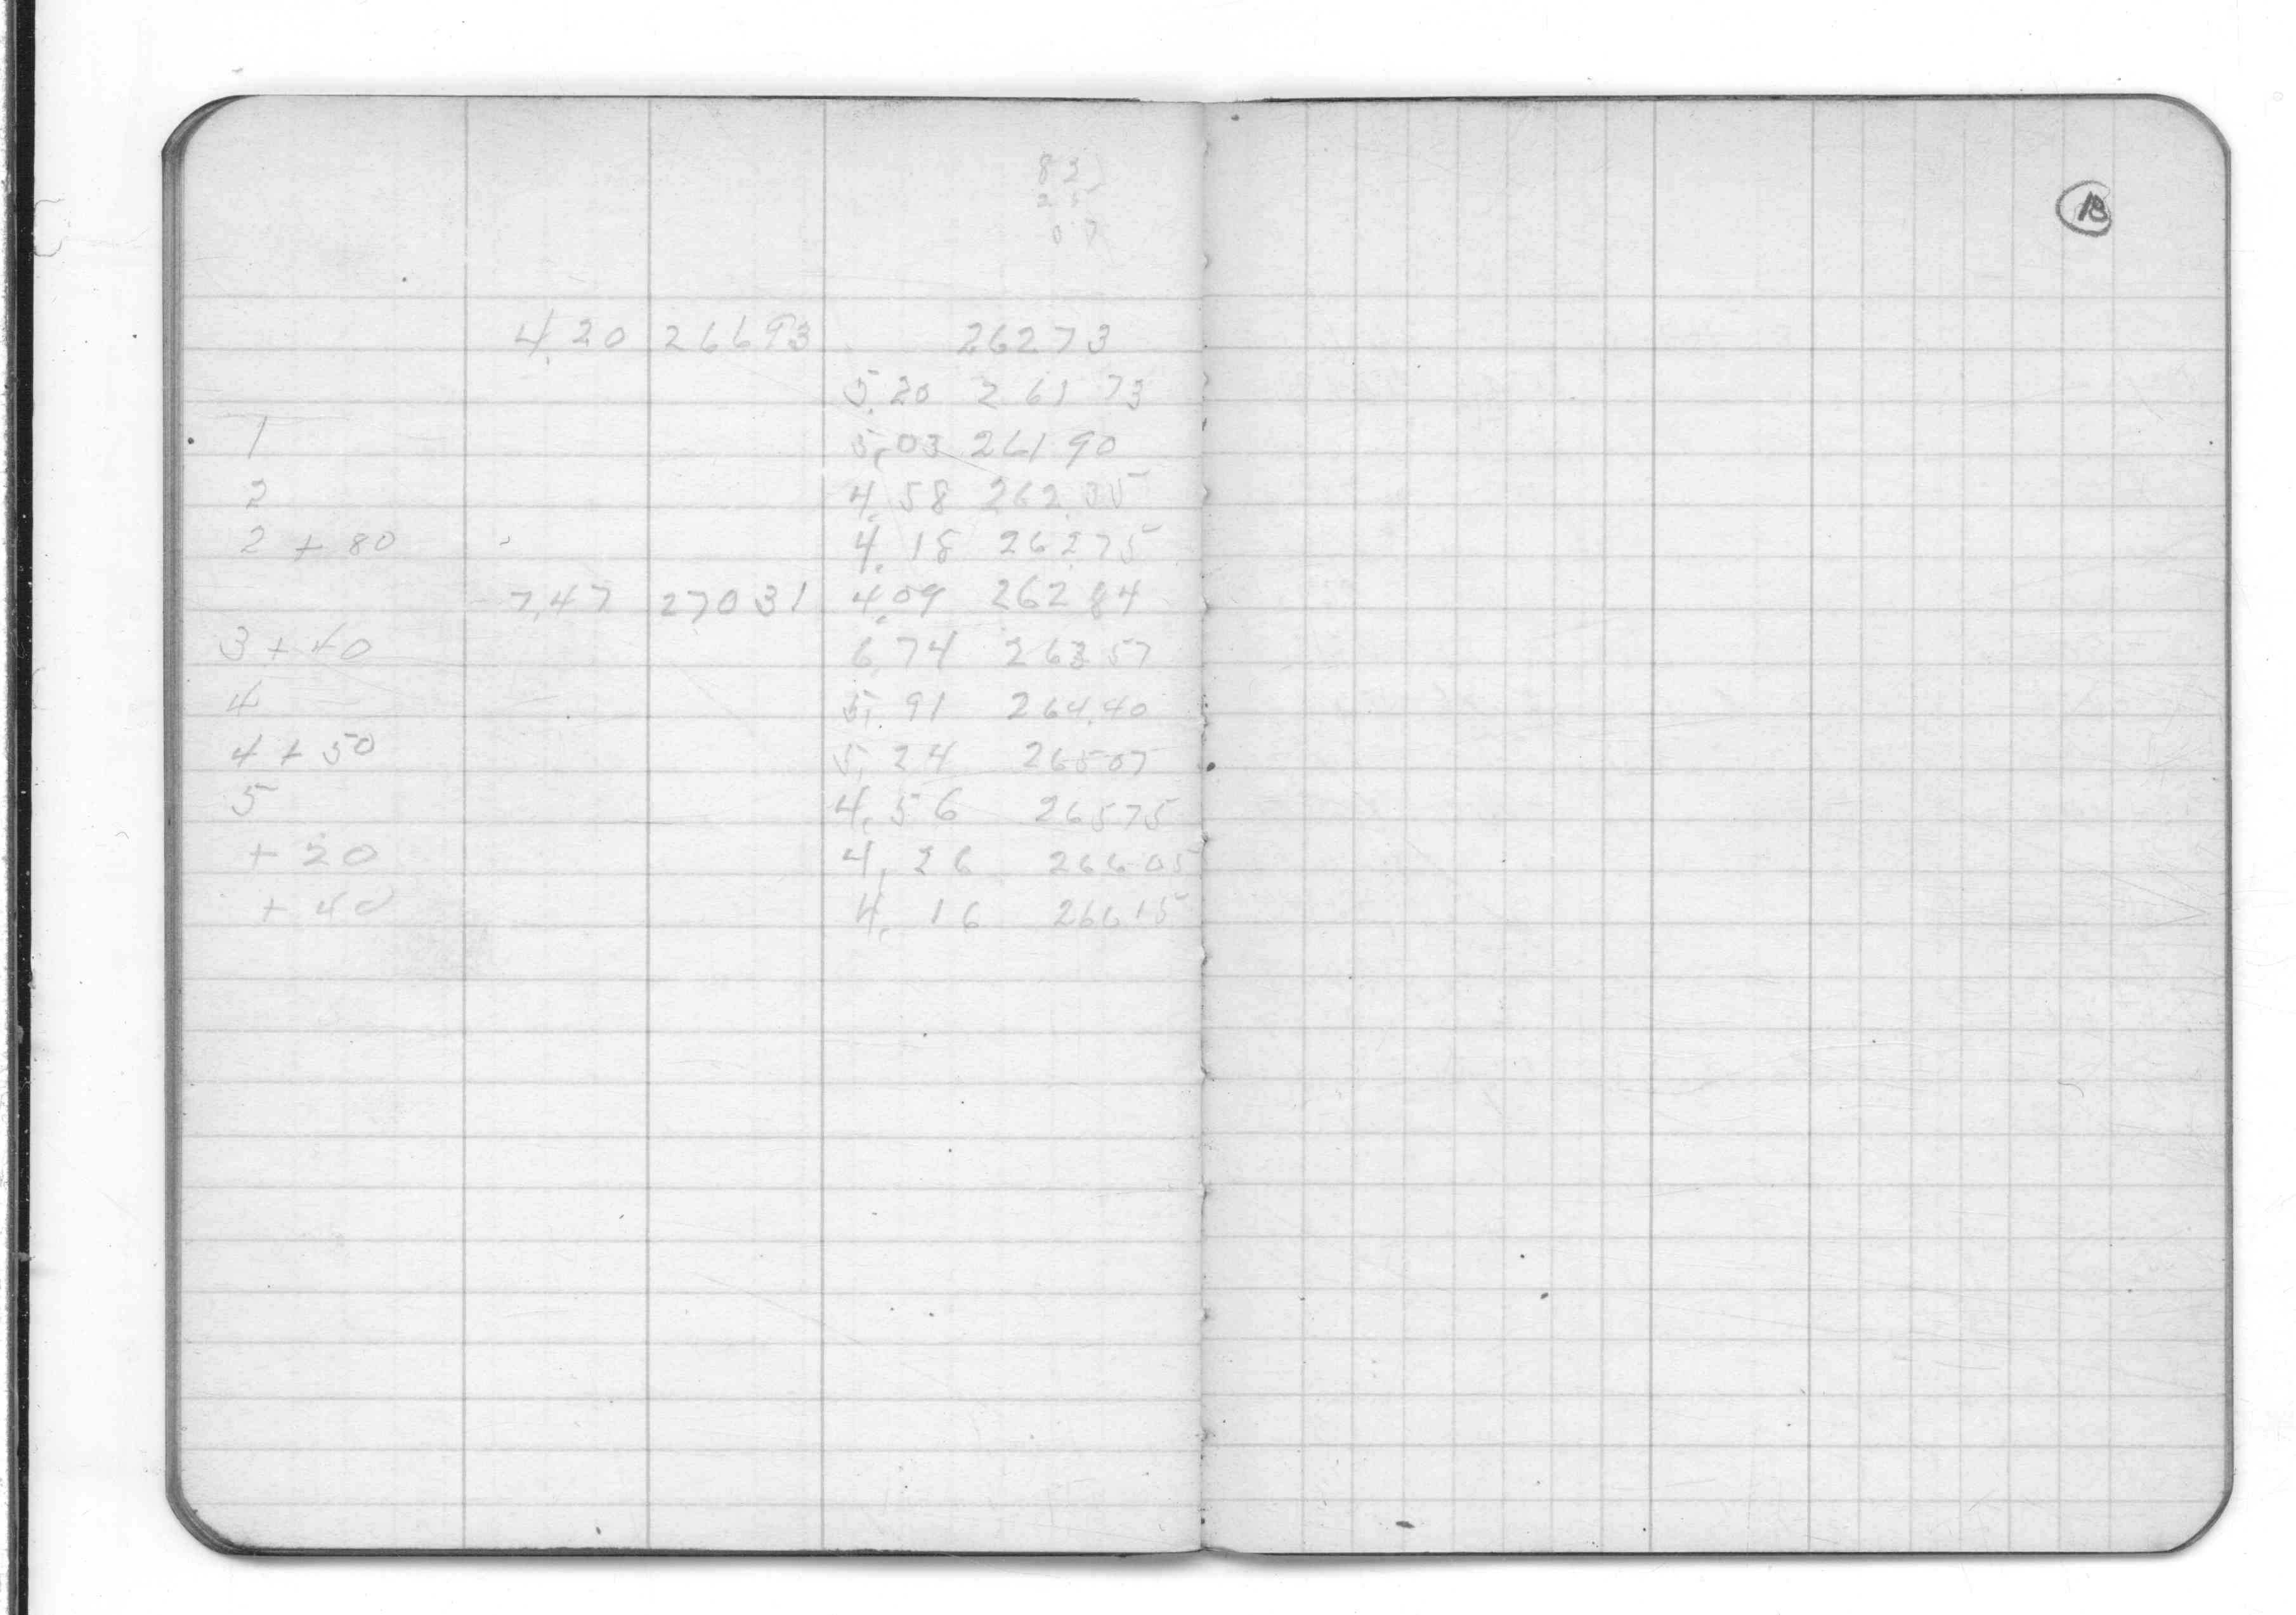 83
07
18
4.20 26693 26273
5.20 26173
1 5.03 26190
2 4.58 26235
2 + 80 4.18 26275
7.47 27031 4.09 26284
3 + 40 6.74 26357
4 5.91 264.40
4 + 50 5.24 26507
5 4.56 26575
+ 20 4.26 26605
+ 40 4.16 26615